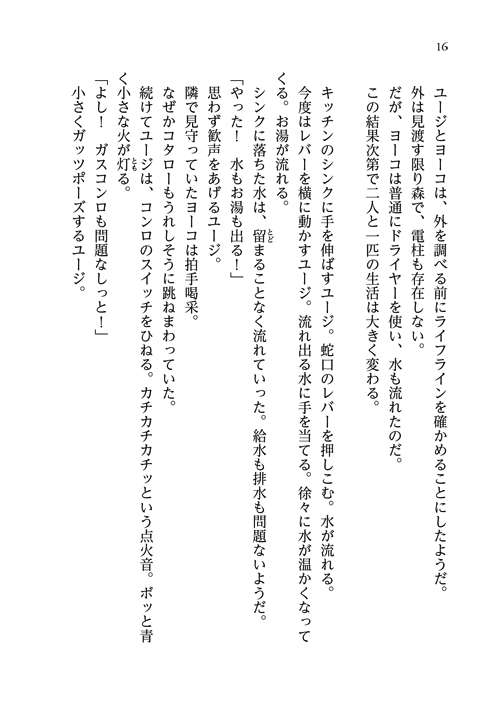 16
ユージとヨーコは、外を調べる前にライフラインを確かめることにしたようだ。
外は見渡す限り森で、電柱も存在しない。
だが、ヨーコは普通にドライヤーを使い、水も流れたのだ。
この結果次第で二人と一匹の生活は大きく変わる。
キッチンのシンクに手を伸ばすユージ。蛇口のレバーを押しこむ。水が流れる。
今度はレバーを横に動かすユージ。流れ出る水に手を当てる。徐々に水が温かくなって
くる。お湯が流れる。
シンクに落ちた水は、留まることなく流れていった。給水も排水も問題ないようだ。
とど
「やった！　水もお湯も出る！」
思わず歓声をあげるユージ。
隣で見守っていたヨーコは拍手喝采。
なぜかコタローもうれしそうに跳ねまわっていた。
続けてユージは、コンロのスイッチをひねる。カチカチカチッという点火音。ボッと青
く小さな火が灯る。
とも
「よし！　ガスコンロも問題なしっと！」
小さくガッツポーズするユージ。